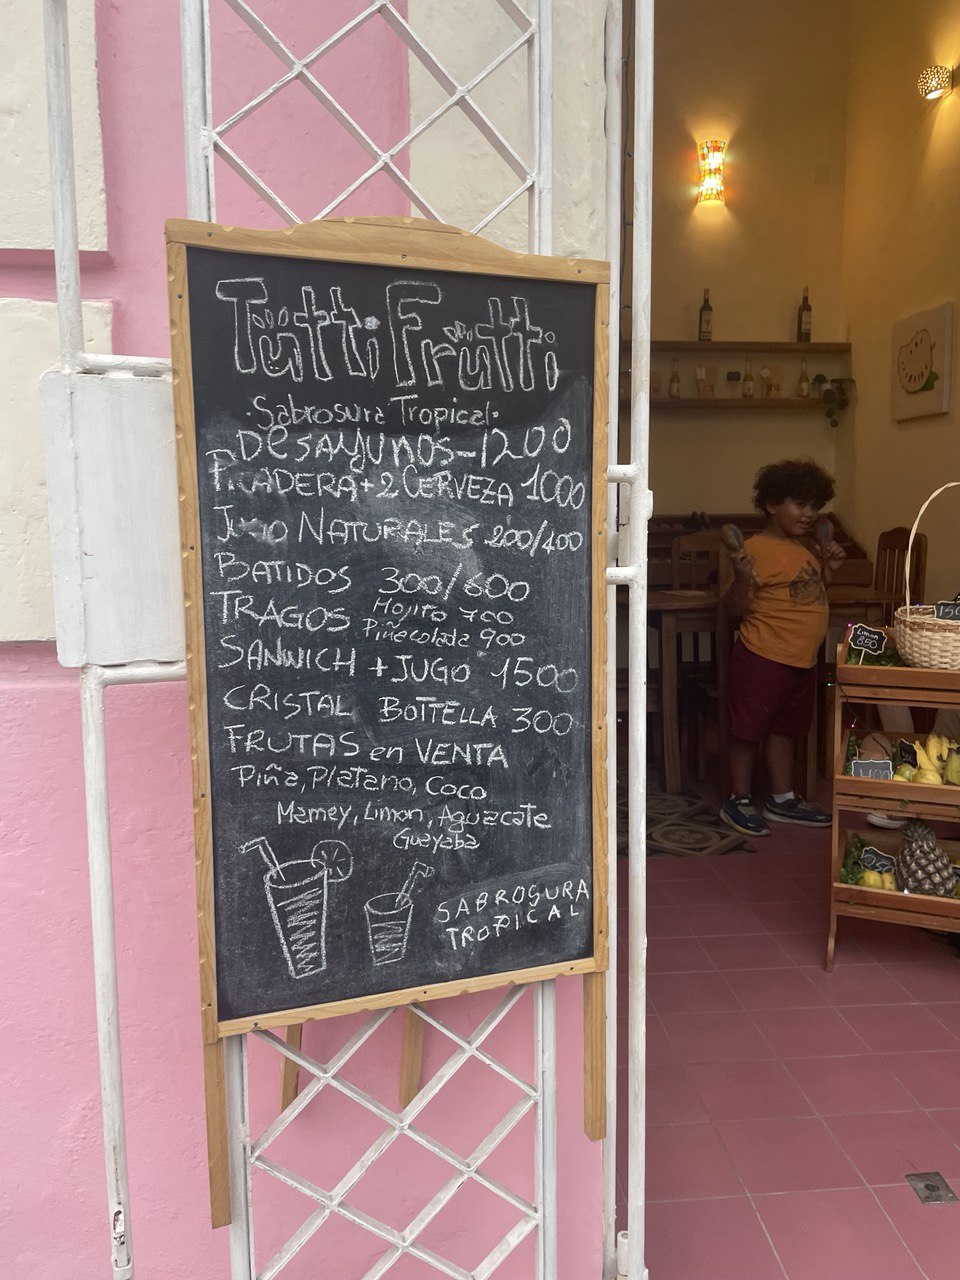 Tutti Frutti
·Sabrosura Tropical·
DESAYUNOS-1200
PICADERA+2 CERVEZA 1000
JUGO NATURALES 200/400
BATIDOS 300/600
TRAGOS Mojito 700
Piñacolada 900
SANWICH + JUGO 1500
CRISTAL BOTTELLA 300
FRUTAS en VENTA
Piña, Platano, Coco
Mamey, Limon, Aguacate
Guayaba
SABROSURA
TROPICAL
Limon
850